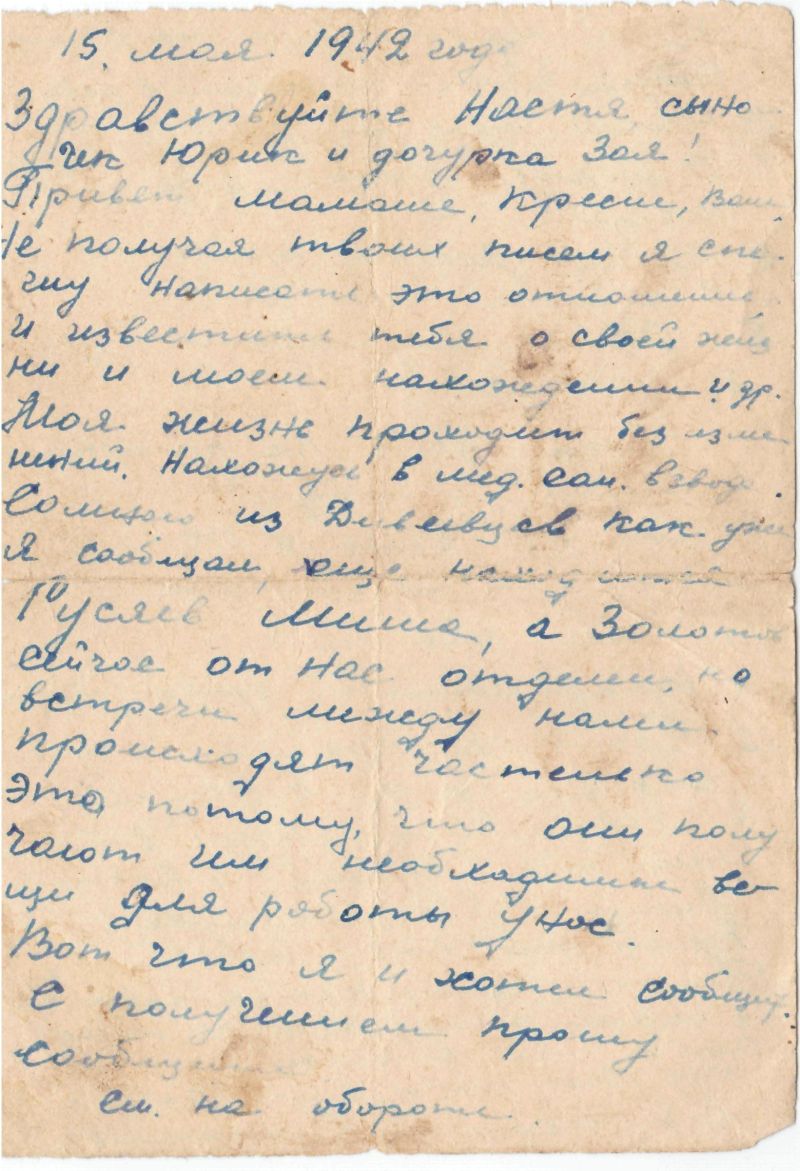 15. мая. 1942 года
Здравствуйте Настя, сыно-
чек Юрик и дочурка Зоя!
Привет мамаше, Кресне,
Не получая твоих писем я спе-
шу написать это отношение
и известить тебя о своей жиз
ни и моем. нахождении и др.
Моя жизнь проходит без изме
нений. Нахожусь в мед. сан. взводе.
Со мною из Дивеевцев как уже
я сообщал, еще находится
Гусяев Миша, а Золотов
сейчас от нас отделен, но
встречи между нами
происходят частенько
это потому, что они полу
чают им необходимые ве
щи для работы у нас.
Вот что я и хотел сообщить.
С получением прошу
сообщить
см. на обороте.